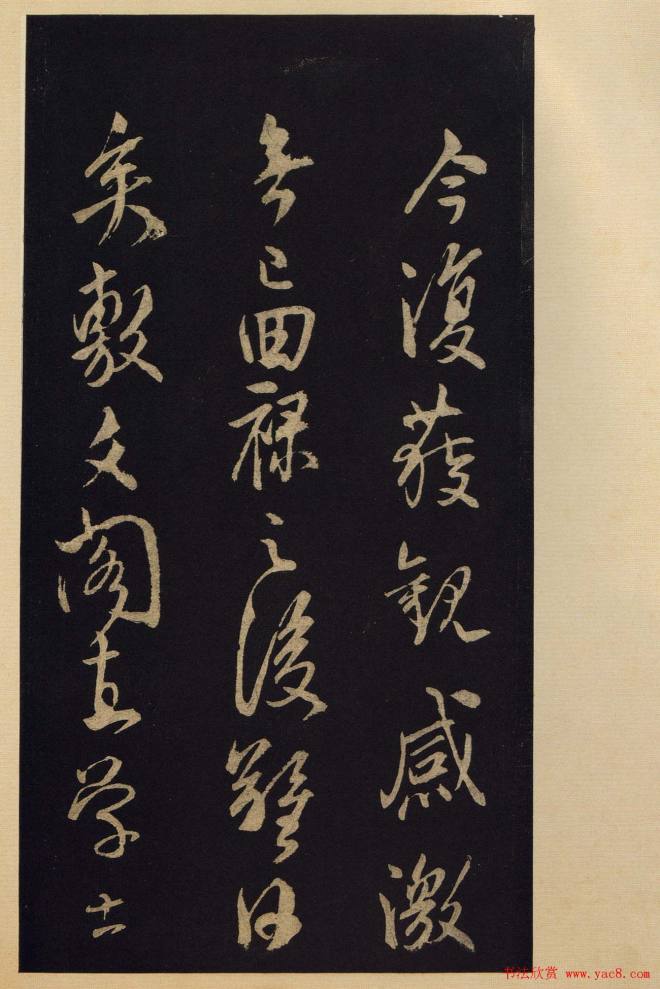 今復獲觀感激
無已回禄之後難得
矣敷文閣直學士
书法欣赏 www.yac8.com